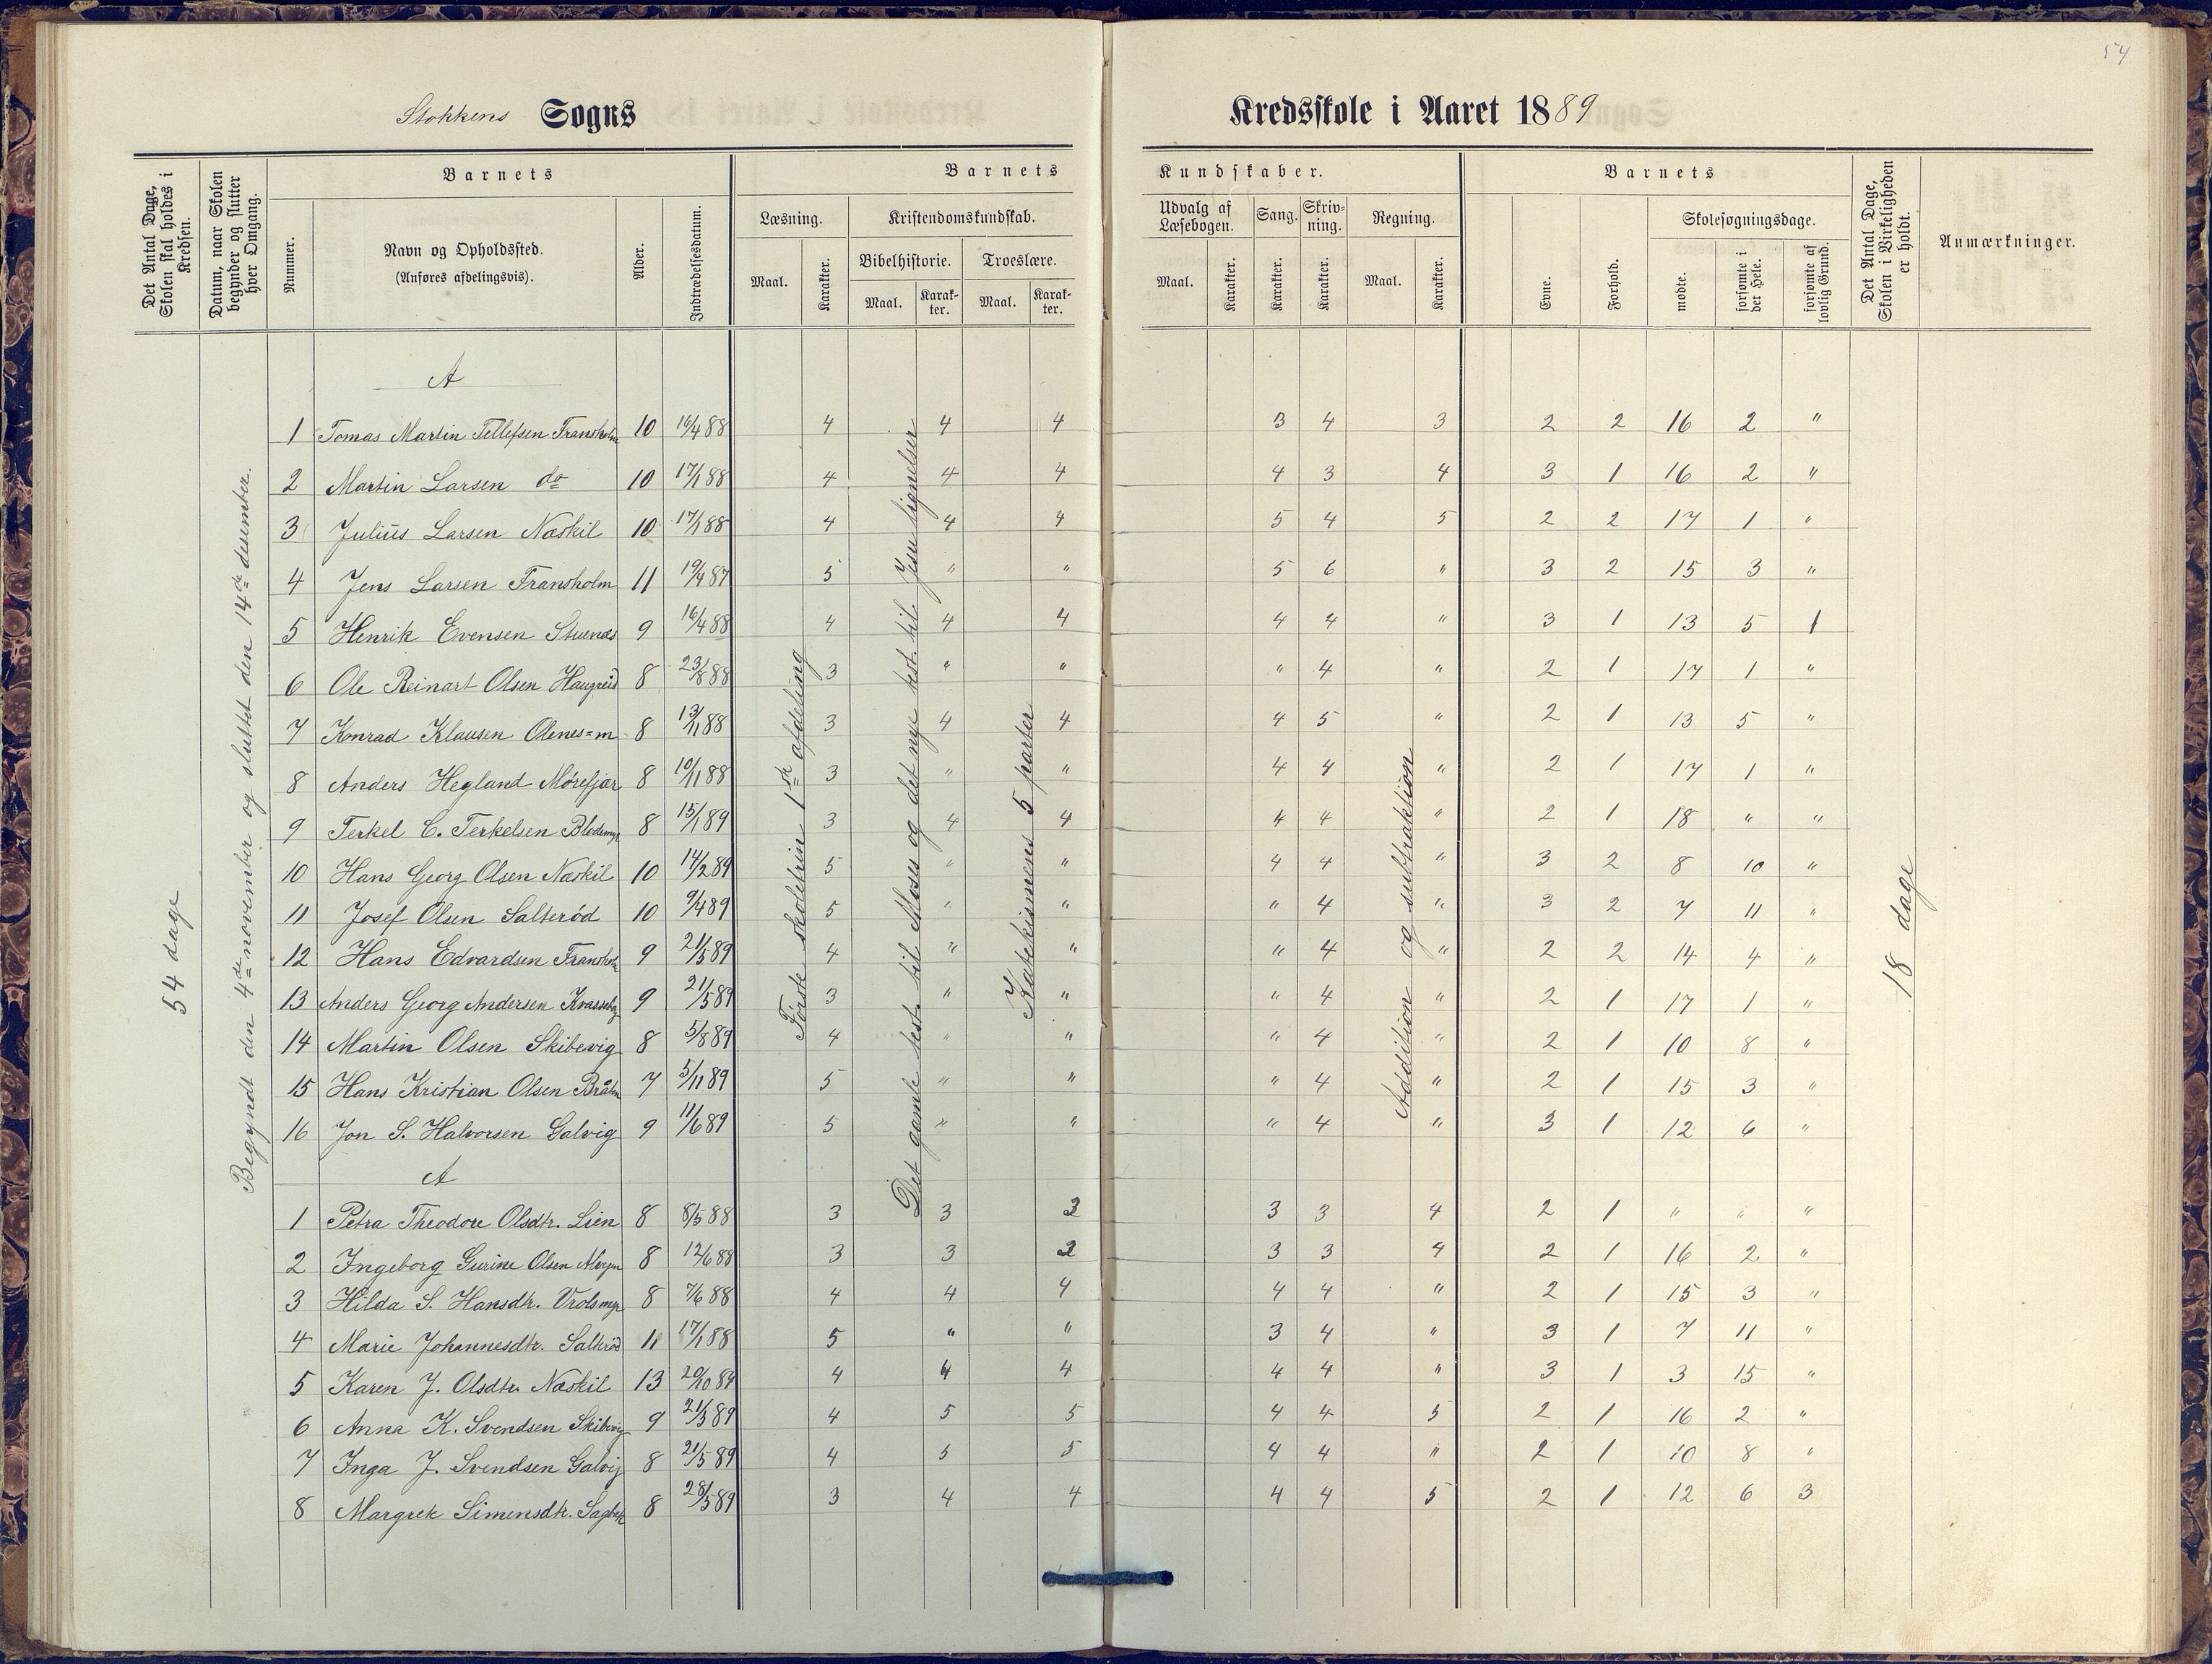 54
Stokkens Sogns Kredsskole i Aaret 1889
Det Antal Dage, Skolen skal holdes i Kredsen.
Datum, naar Skolen begynder og slutter hver Omgang.
Barnets
Nummer.
Navn og Opholdssted.
(Anføres afdelingsvis).
Alder.
Indtrædelsesdatum.
Barnets Kundskaber.
Læsning.
Maal.
Karakter.
Kristendomskundskab.
Bibelhistorie.
Maal.
Karakter.
Troeslære.
Maal.
Karakter.
Udvalg af Læsebogen.
Maal.
Karakter.
Sang.
Karakter.
Skrivning.
Karakter.
Regning.
Maal.
Karakter.
Barnets
Evne.
Forhold.
Skolesøgningsdage.
mødte.
forsømte i det Hele.
forsømte af lovlig Grund.
Det Antal Dage, Skolen i Virkeligheden er holdt.
Anmærkninger.
54 dage
Begyndt den 4de november og sluttet den 14de desember.
Første skoletrin 1ste afdeling
Det gamle test. til Moses og det nye test. til Jesu lignelser
Katekismens 5 parter
Addition og subtraktion
18 dage
A
1 Tomas Martin Tellefsen Fransholm 10 16/4 88 4 4 4 3 4 3 2 2 16 2 "
2 Martin Larsen do 10 17/1 88 4 4 4 4 3 4 3 1 16 2 "
3 Julius Larsen Næskil 10 17/1 88 4 4 4 5 4 5 2 2 17 1 "
4 Jens Larsen Fransholm 11 19/4 87 5 " " 5 6 " 3 2 15 3 "
5 Henrik Evensen Stuenæs 9 16/4 88 4 4 4 4 4 " 3 1 13 5 1
6 Ole Reinart Olsen Haugreid 8 23/8 88 3 " " " 4 " 2 1 17 1 "
7 Konrad Klausen Olenes=m 8 13/11 88 3 4 4 4 5 " 2 1 13 5 "
8 Anders Hegland Mørefjær 8 10/11 88 3 " " 4 4 " 2 1 17 1 "
9 Terkel C. Terkelsen 8 15/1 89 3 4 4 4 4 " 2 1 18 " "
10 Hans Georg Olsen Næskil 10 14/2 89 5 " " 4 4 " 3 2 8 10 "
11 Josef Olsen Salterød 10 9/4 89 5 " " " 4 " 3 2 7 11 "
12 Hans Edvardsen Fransholm 9 21/5 89 4 " " " 4 " 2 2 14 4 "
13 Anders Georg Andersen 9 21/5 89 3 " " " 4 " 2 1 17 1 "
14 Martin Olsen Skibevig 8 5/8 89 4 " " " 4 " 2 1 10 8 "
15 Hans Kristian Olsen 7 5/11 89 5 " " " 4 " 2 1 15 3 "
16 Jon S. Halvorsen Galvig 9 11/6 89 5 " " " 4 " 3 1 12 6 "
A
1 Petra Theodore Olsdtr. Lien 8 8/5 88 3 3 3 3 3 4 2 1 " " "
2 Ingeborg Gurine Olsen 8 12/6 88 3 3 3 3 3 4 2 1 16 2 "
3 Hilda S. Hansdtr. Vrolsmyr 8 7/6 88 4 4 4 4 4 " 2 1 15 3 "
4 Marie Johannesdtr. Salterød 11 17/1 88 5 " " 3 4 " 3 1 7 11 "
5 Karen J. Olsdtr. Næskil 13 20/10 84 4 4 4 4 4 " 3 1 3 15 "
6 Anna K. Svendsen Skibevig 9 21/5 89 4 5 5 4 4 5 2 1 16 2 "
7 Inga J. Svendsen Galvig 8 21/5 89 4 5 5 4 4 " 2 1 10 8 "
8 Margrek Simensdtr. 8 28/5 89 3 4 4 4 4 5 2 1 12 6 3